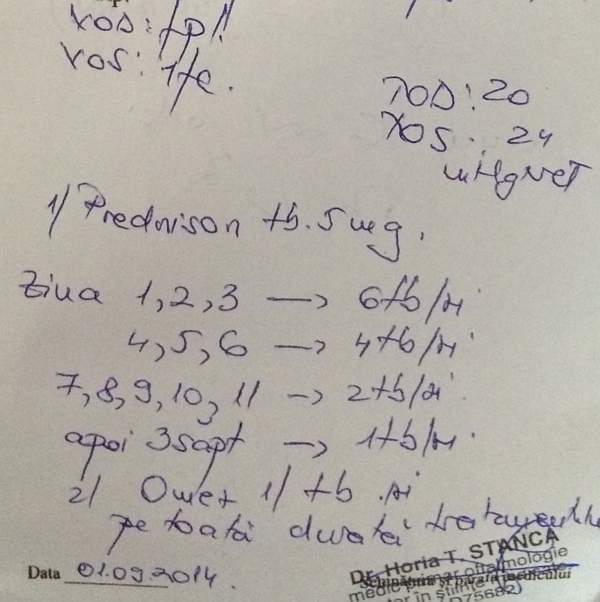 VOD: fpl!
VOS: 1fc.
TOD: 20
TOS: 24
mmHgNCT
1/ Prednison tb. 5 mg.
Ziua 1, 2, 3 → 6tb/zi
4, 5, 6 → 4tb/zi
7, 8, 9, 10, 11 → 2tb/zi
apoi 3sapt → 1tb/zi
2/ Omez 1/ tb. zi
pe toată durata tratamentului
Data 01.09.2014.
Dr. Horia T. STANCA
medic primar oftalmologie
Semnătura și parafa medicului
în științe medicale